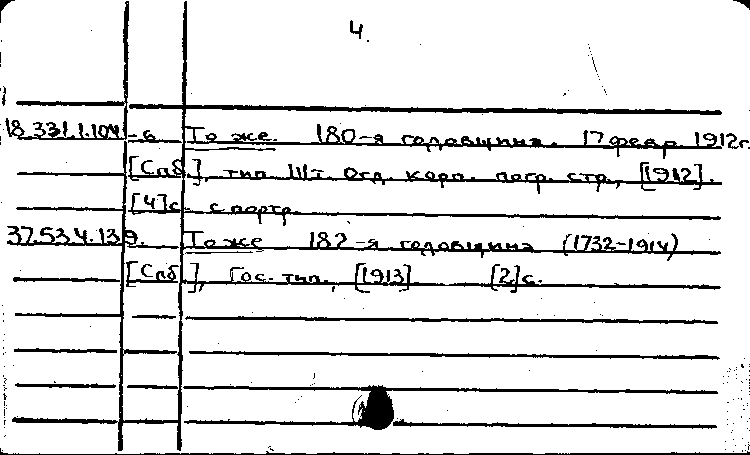 4.
18.331.1.104-6 То же. 180-я годовщина. 17 февр. 1912г.
[Спб.], тип. Шт. Отд. корп. погр. стр., [1912].
[4]с. с портр.
37.53.4.139. То же 182-я годовщина (1732-1914)
[Спб.], Гос. тип., [1913] [2]с.